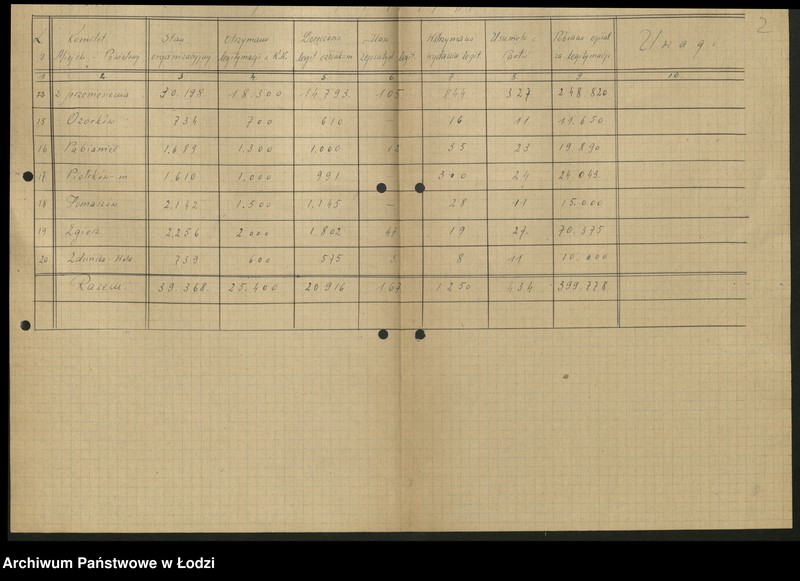 2
L. Komitet Stan Otrzymano Doręczono Ilość Wstrzymano Usunięto z Pobrano opłat Uwagi
Miejsko - Powiatowy organizacyjny legitymacji z K.C. legit. członkom legit. wydania legit. Partii za legitymacji
1 2 3 4 5 6 7 8 9 10
z przeniesienia 30.198 18.300 14.793 105 844 327 248.820
15 Ozorków 734 700 610 — 16 11 11.650
16 Pabianice 1.689 1.300 1.000 12 35 23 19.890
17 Piotrków-m 1.610 1.000 991 300 24 24.043
18 Tomaszów 2.142 1.500 1.145 — 28 11 15.000
19 Zgierz 2.256 2000 1.802 47 19 27 70.375
20 Zduńska-Wola 739 600 575 3 8 11 10.000
Razem 39.368 25.400 20916 167 1250 434 399.778
Archiwum Państwowe w Łodzi